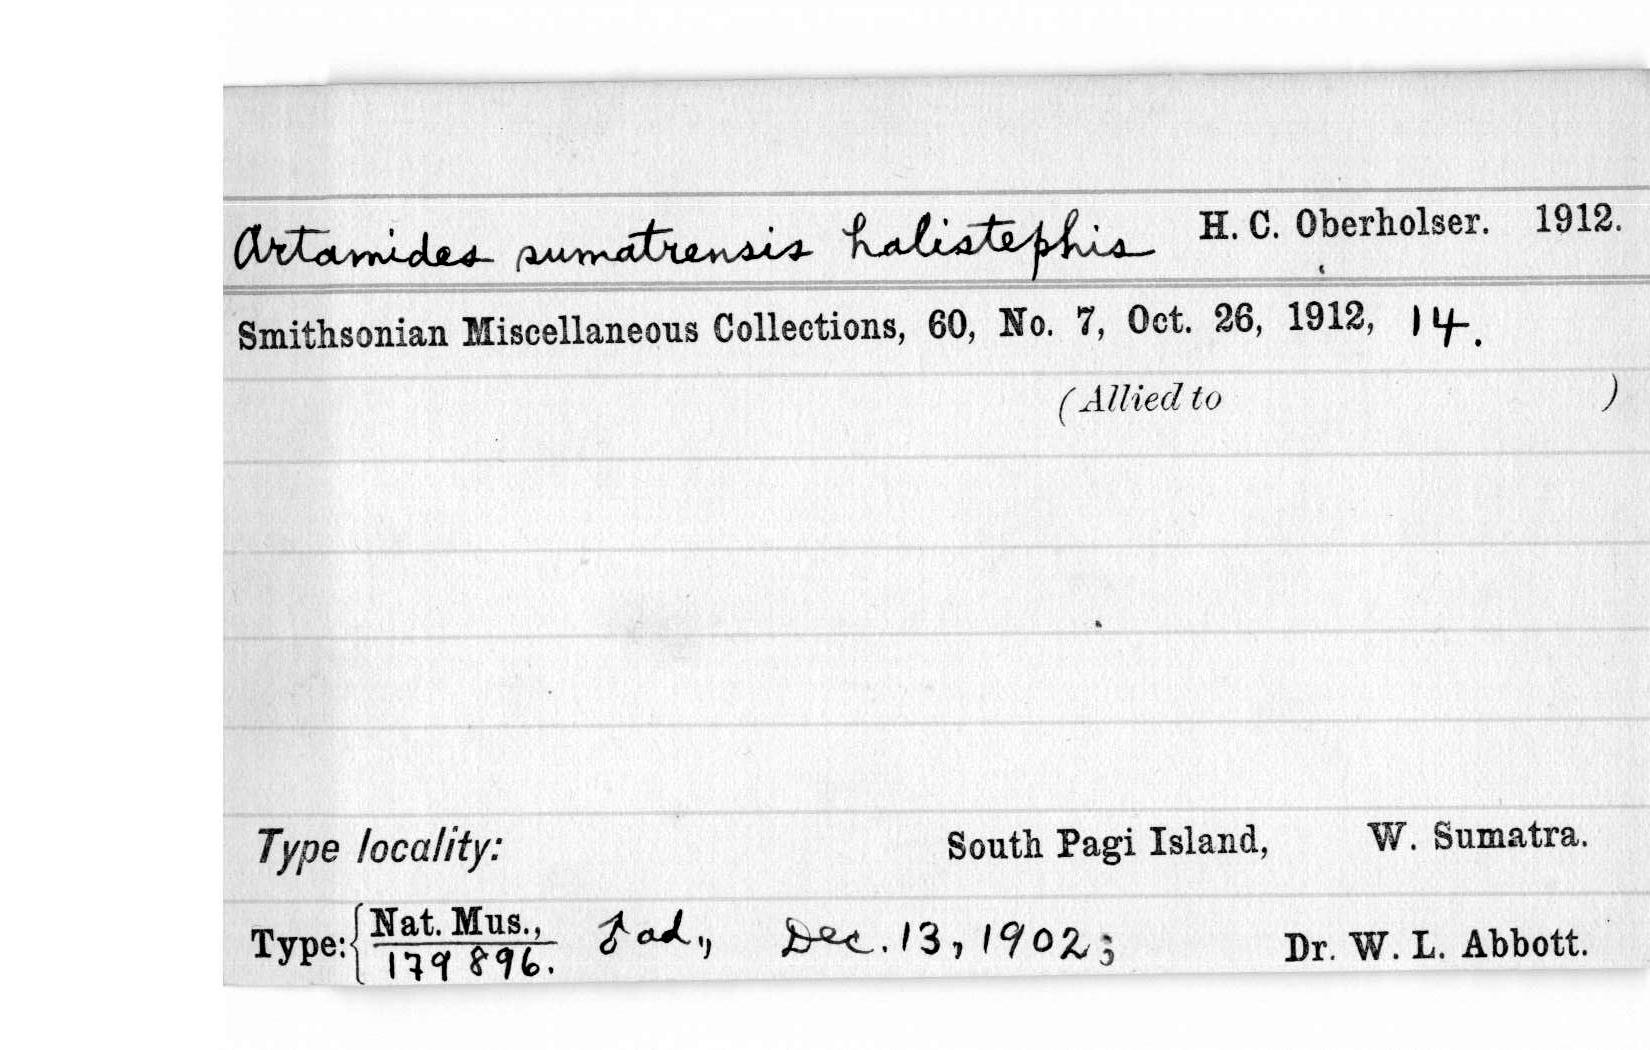 Artamides sumatrensis halistephis H. C. Oberholser. 1912.
Smithsonian Miscellaneous Collections, 60, No. 7, Oct. 26, 1912, 14.
(Allied to )
Type locality: South Pagi Island, W. Sumatra.
Type: { Nat. Mus., 179 896. ♂ ad., Dec. 13, 1902; Dr. W. L. Abbott.